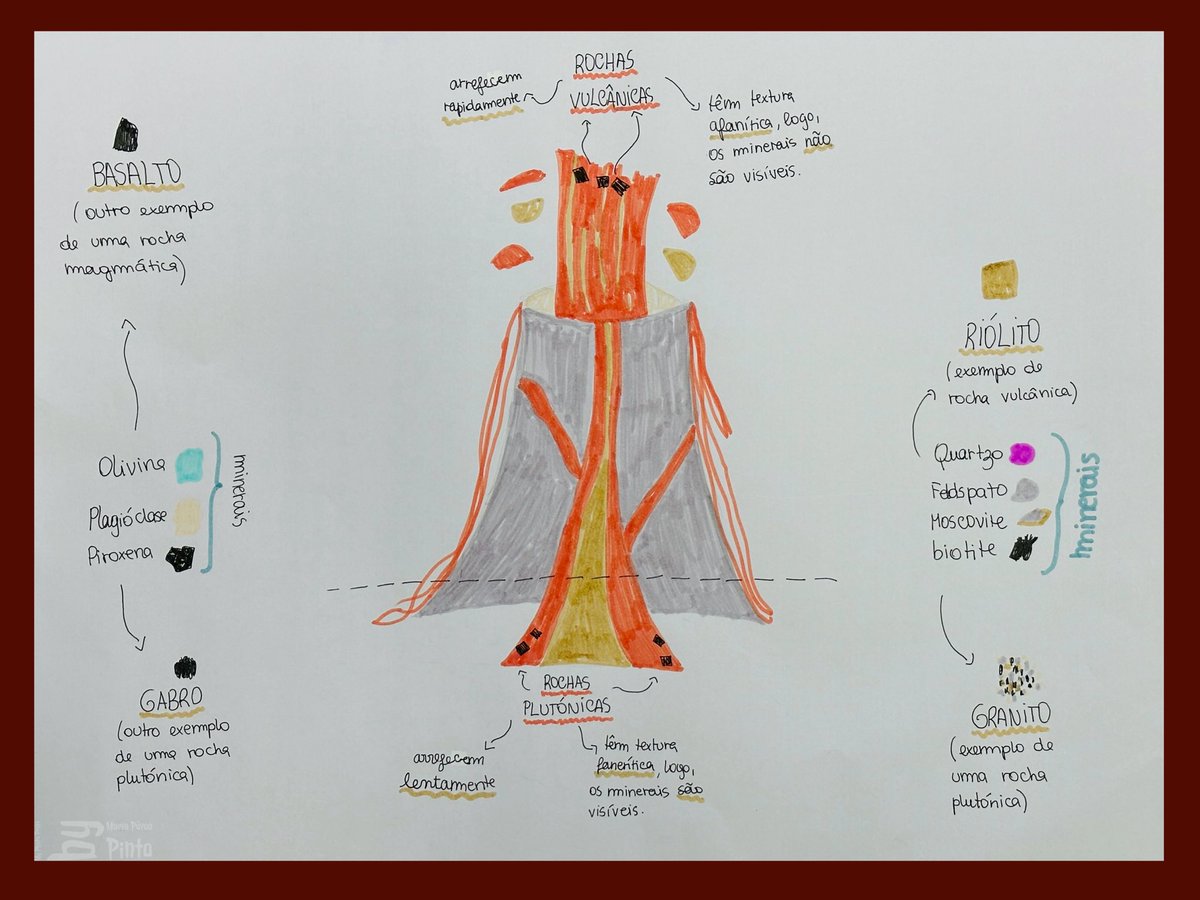 ROCHAS
VULCÂNICAS
arrefecem
rapidamente
têm textura
afanítica, logo,
os minerais não
são visíveis.
BASALTO
(outro exemplo
de uma rocha
magmática)
Olivina
Plagióclase
Piroxena
minerais
GABRO
(outro exemplo
de uma rocha
plutónica)
RIÓLITO
(exemplo de
rocha vulcânica)
Quartzo
Feldspato
Moscovite
biotite
minerais
GRANITO
(exemplo de
uma rocha
plutónica)
ROCHAS
PLUTÓNICAS
arrefecem
lentamente
têm textura
fanerítica, logo,
os minerais são
visíveis.
Pinto